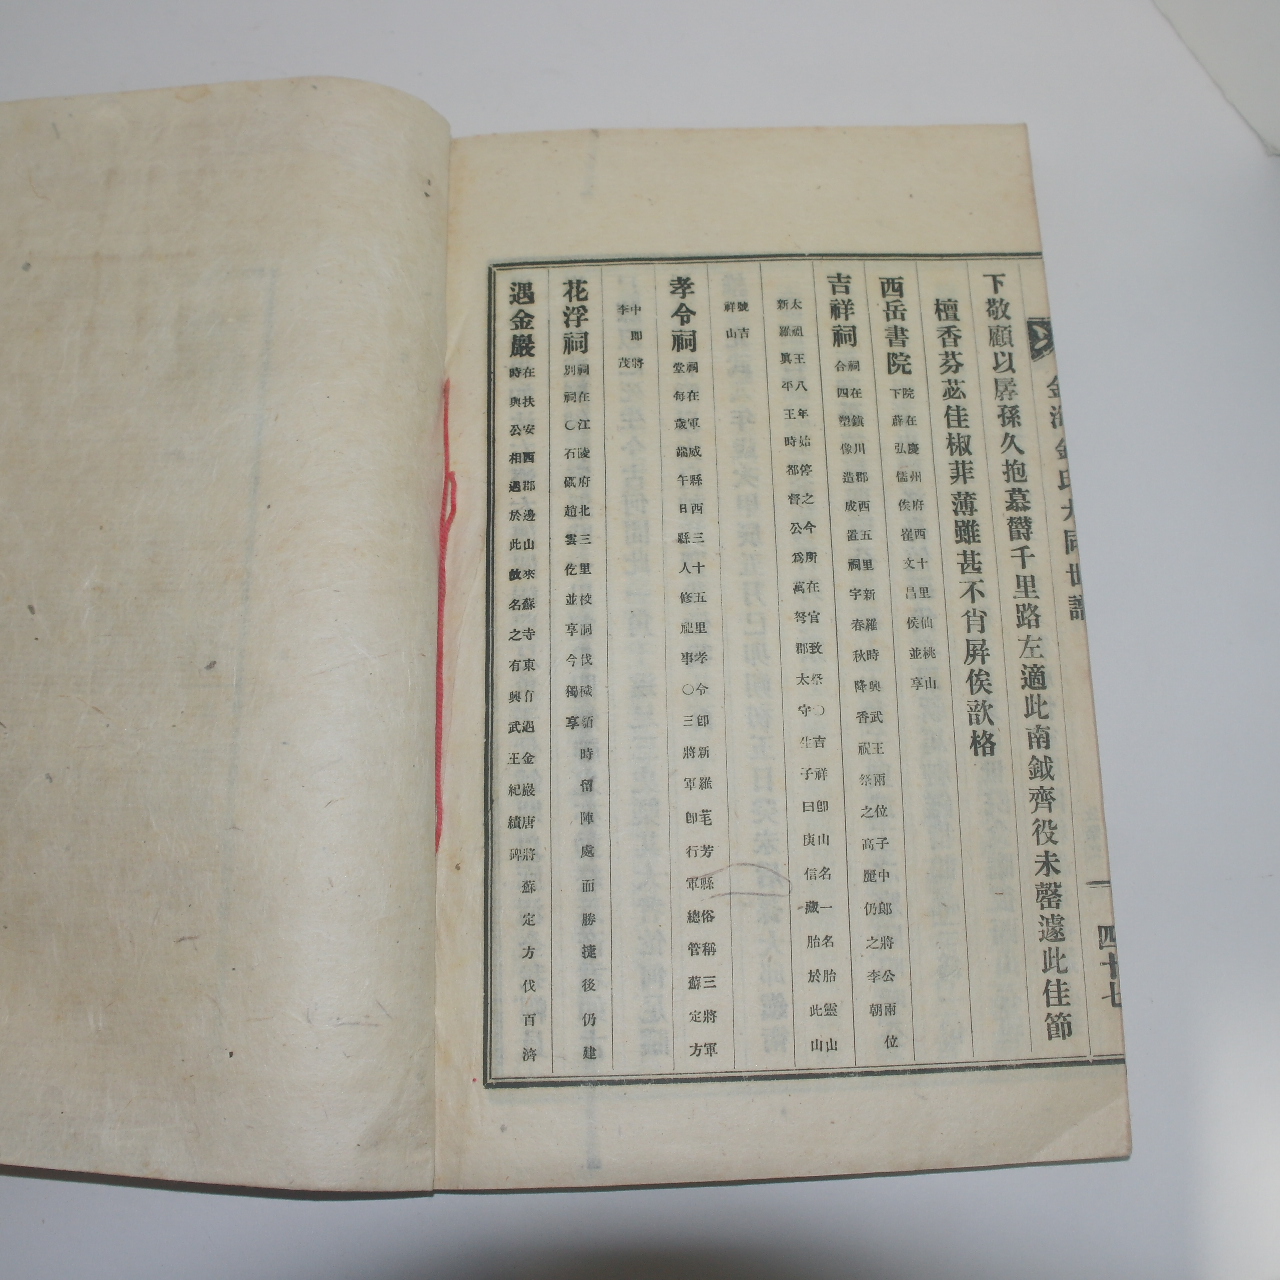 金海金氏大同世譜
四十七
下敬顧以孱孫久抱慕欝千里路左適此南鉞齊役未罄遽此佳節
檀香芬苾佳椒菲薄雖甚不肖屛俟歆格
西岳書院
院在慶州府西十里仙桃山
下薛弘儒侯崔文昌侯並享
吉祥祠
祠在鎭川郡西五里新羅時興武王兩位子中郞將公兩位
合四塑像造成置祠宇春秋降香祝祭之高麗仍之李朝
太祖王八年始停之今所在官致祭〇吉祥卽山名一名胎靈山
新羅眞平王時都督公爲萬弩郡太守生子曰庾信藏胎於此山
號吉
祥山
孝令祠
祠在軍威縣西三十五里孝令卽新羅芼芳縣俗稱三將軍
堂每歲端午日縣人修祀事〇三將軍卽行軍總管蘇定方
中郞將
李茂
花浮祠
祠在江陵府北三里按詞伐穢貊時留陣處而勝捷後仍建
別祠〇石砥趙雲仡並享今獨享
遇金巖
在扶安西郡邊山來蘇寺東有遇金巖唐將蘇定方伐百濟
時與公相遇於此故名之有興武王紀績碑